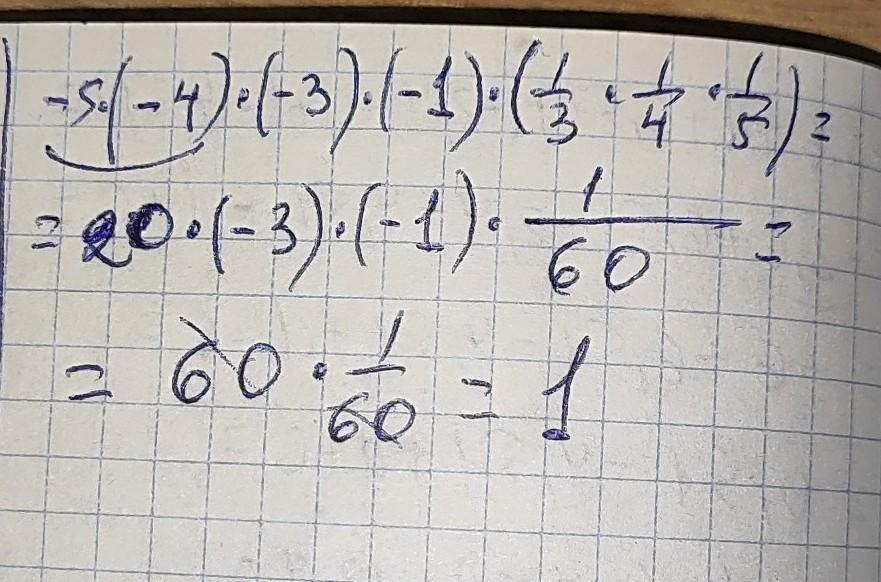 -5·(-4)·(-3)·(-1)·(1/3 · 1/4 · 1/5) =
= 20·(-3)·(-1)· 1/60 =
= 60 · 1/60 = 1